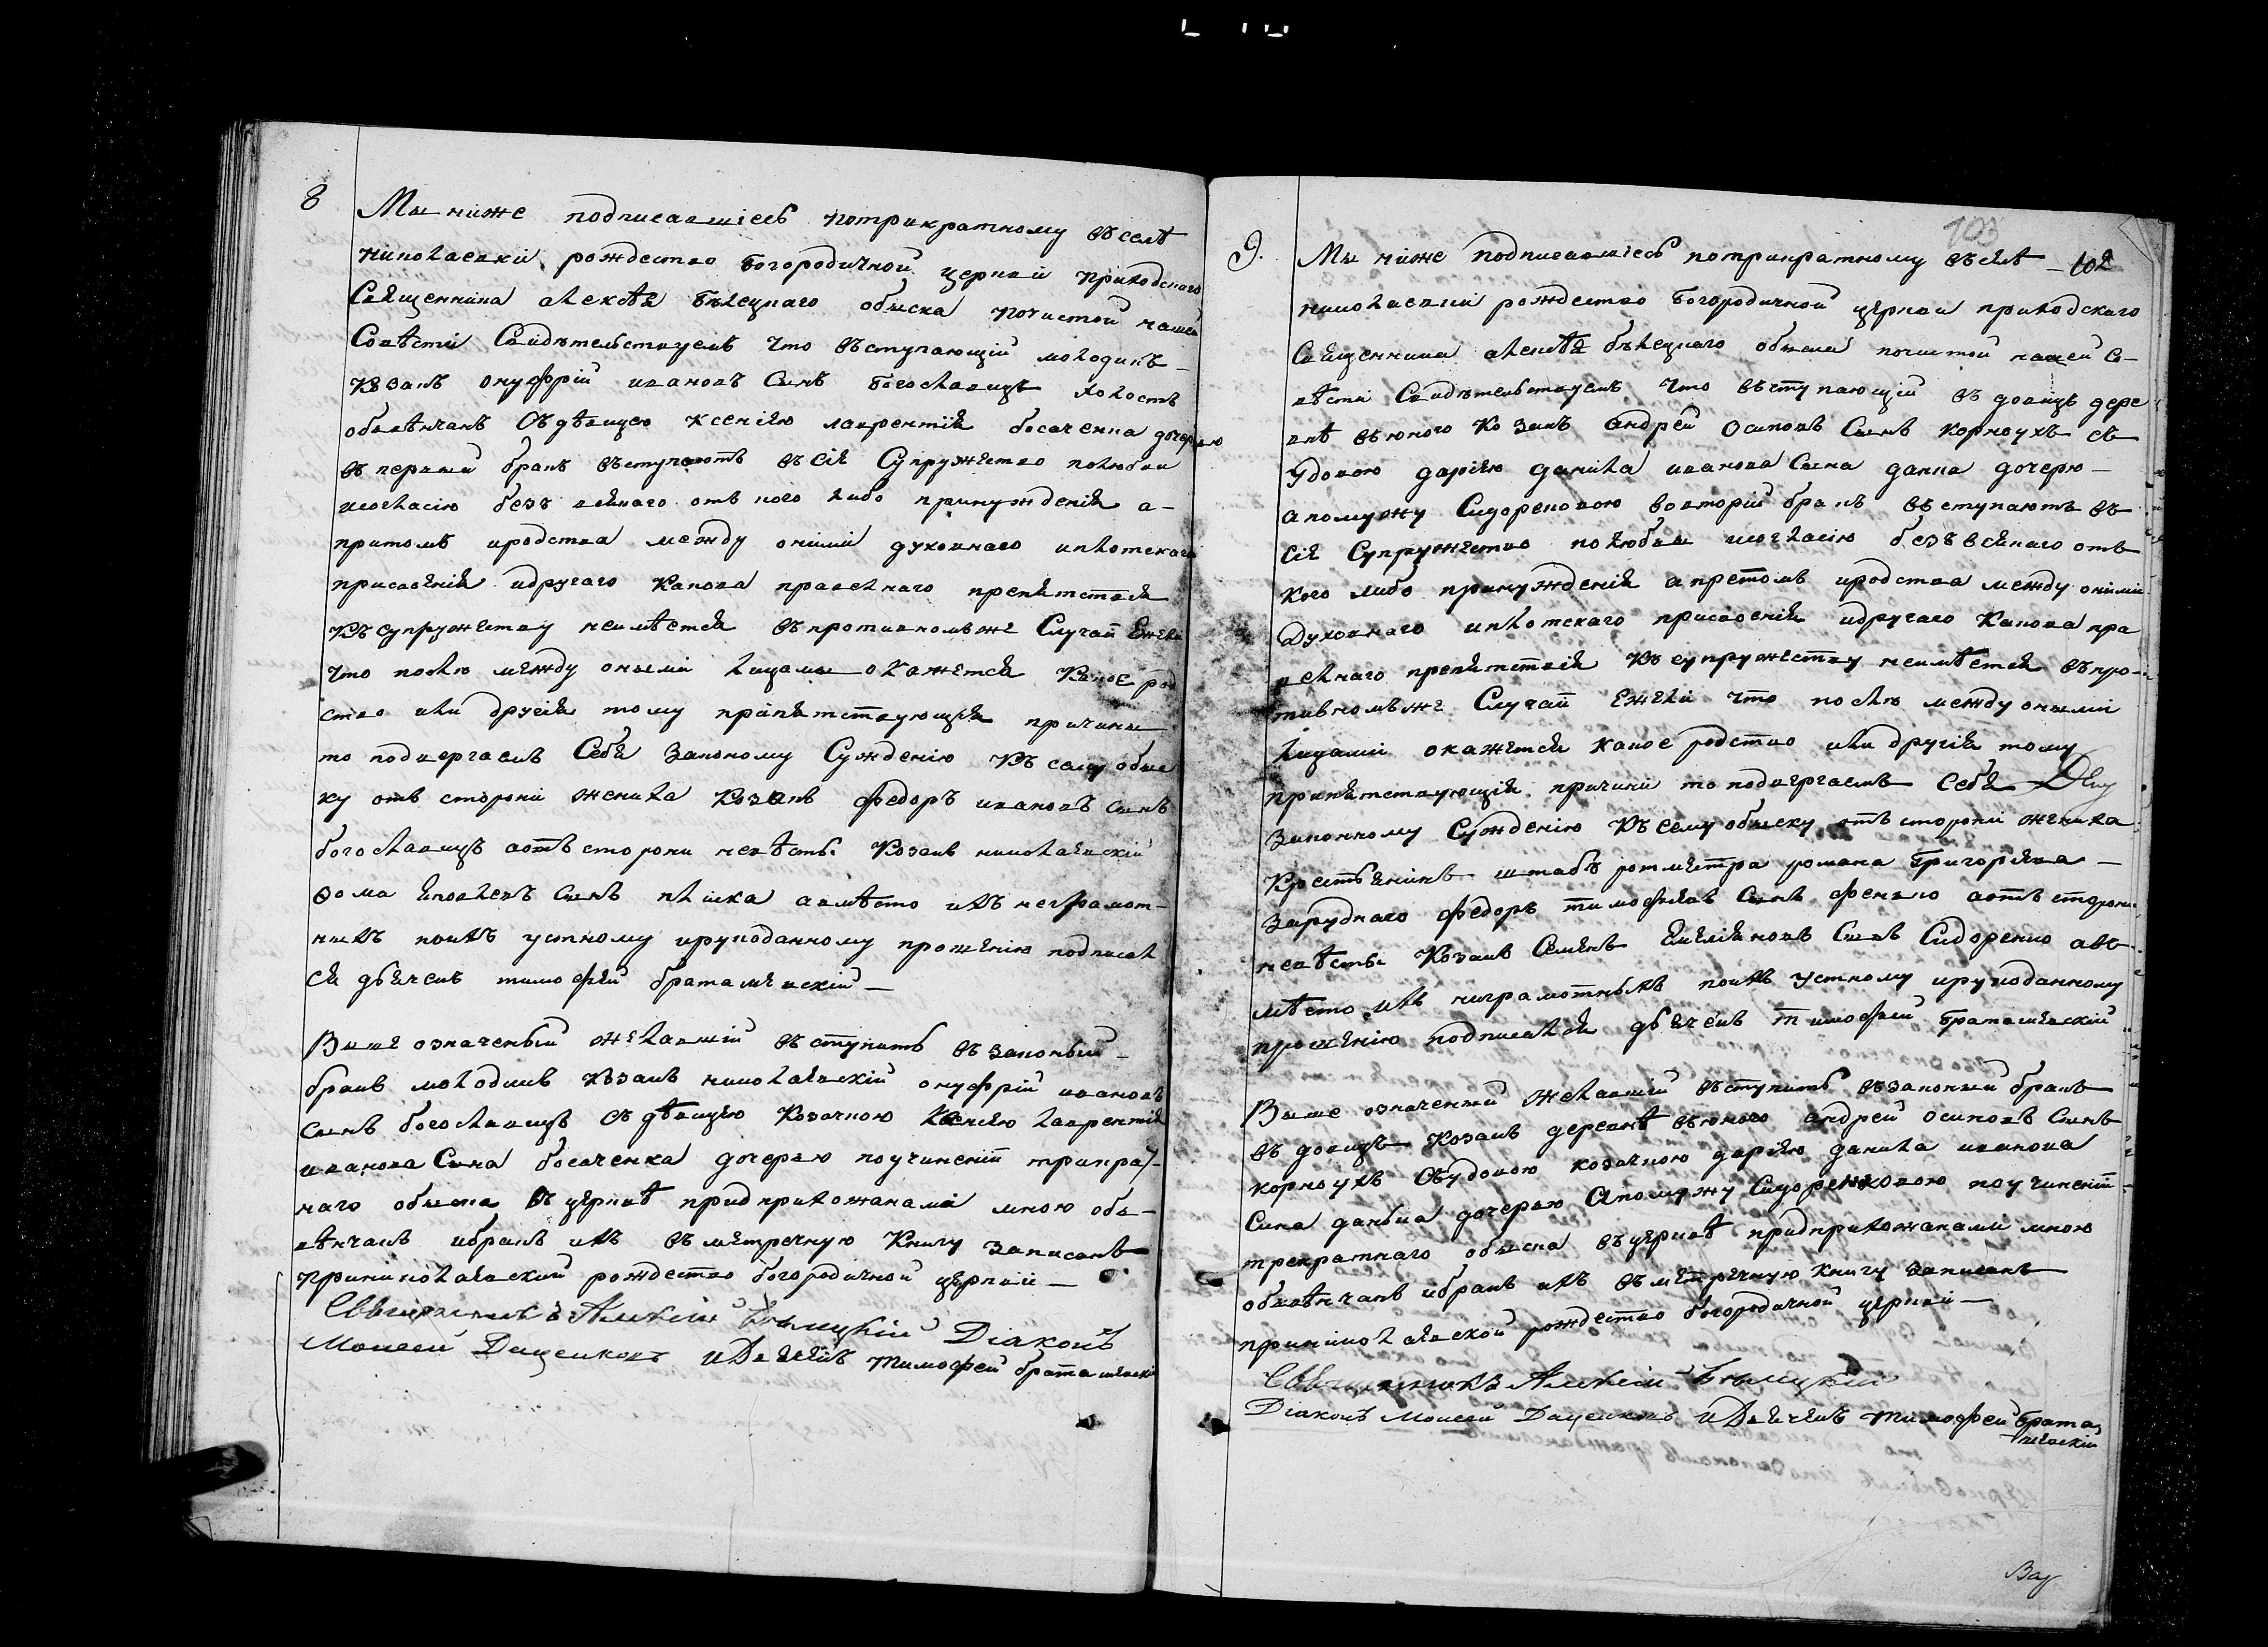 8
Мы ниже подписавшіесъ потрикратному въ селѣ
николаевкй рождество Богородичной церкви приходскаго
Священника алексѣя Бѣлецкаго обыска почистой нашей
Совѣсти Свидѣтельствуемъ Что въступающій молодикъ
козакъ онуфрій ивановъ Сынъ Богославецъ холостъ
обвѣнчанъ Съдѣвицею ксенією лаврентія босаченка дочерью
въ первый бракъ въступаютъ въ Сіе Супружество полюбви
исогласію безъ всякаго отъ кого либо принужденія а-
притомъ иродства между оними духовнаго иплотскаго
присвоенія идругаго какова правелнаго препятствія
Къ супружеству неимѣется въпротивномъже Случай Ежели
что послѣ между оными лицамы окажется Какое род
ство или другія тому препятствующія причины
то подвергаемъ Себя законому Сужденію Къ сему обыс
ку отъ стороні жениха Козакъ федоръ ивановъ Сынъ
богославецъ аотъ стороны невѣсты Козакъ николаевскій
ѳома Сынъ авмѣсто ихъ неграмот-
ныхъ поихъ устному ируподанному прошенію подписал
ся дьячекъ тимофей браташевскій —
Выше означеный желавшій въступить въ законый
бракъ молодикъ козакъ николаевскій онуфрій ивановъ
Сынъ богославецъ Съ дѣвицею Козачкою Ксенією лаврентія
иванова Сына босаченка дочерью поучиненіи трикрат-
наго обыска въ церквѣ придприхожанами мною обв-
ѣнчанъ ибракъ ихъ въ метречную Книгу записанъ
Принихолаевской рождество богородичной церквй —
Священникъ Алексій Бѣлецкій Діаконъ
Моисей Даценковъ и Дьячекъ Тимофей браташевскій
103
9.
102
Мы ниже подписавшіесъ потрикратному въ селѣ
николаевкй рождество Богородичной церкви приходскаго
Священника алексѣя бѣлецкаго обыска почистой нашей Со-
вѣсти Свидѣтельствуемъ Что въступающій въдовецъ дере
внѣ вьюного Козакъ андрей Осиповъ Сынъ корноухъ съ
Удовою дарією данила иванова Сына дочерю —
апомужу Сидорековою вовторій бракъ въступаютъ въ
Сіе Супружество полюбви исогласію безъвсякаго отъ
Кого либо принужденія апретомъ иродства между оними
Духовнаго иплотскаго присвоенія идругаго Какова пра
велнаго препятствія Къ супружеству неимѣется въпро-
тивномъже Случай Ежели Что послѣ между оными
лицами окажется какое родство или другія тому
препятствующія причины то подвергаемъ Себя
законному Сужденію Къ сему обыску отъ стороні жениха
Крестьянинъ штабъ ротмистра романа Григорієва —
заруднаго федоръ тимофѣевъ Сынъ аотъ стороны
невѣсты Козакъ Семенъ Емеліяновъ Сынъ Сидоренко авъ-
мѣсто ихъ неграмотныхъ поихъ устному ируподанному
прошенію подписался дьячекъ тимофей браташевскій
Выше означеный желавшій въступить въ законый бракъ
въдовецъ козакъ деревнѣ вьюного андрей осиповъ Сынъ
корноухъ Съудовою козачкою дарією данила иванова
Сина дочерью апомужу Сидоренковою поучиненіи
трекратнаго обыска въ церквѣ придприхожанами мною
обвѣнчанъ ибракъ ихъ въ метречную книгу записанъ
принихолаевской рождество богородичной церквй —
Священникъ Алексій Бѣлецкій
Діаконъ Моисей Даценковъ и Дьячекъ Тимофей Брата
шевскій